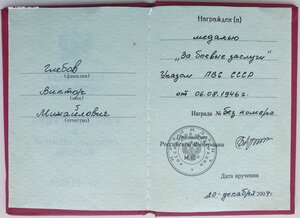 Глебов
(фамилия)
Виктор
(имя)
Михайлович
(отчество)
Награжден (а)
медалью
„За боевые заслуги"
Указом ПВС СССР
от 06.08.1946г.
Награда № без номера
Президент
Российской Федерации
М.П.
Дата вручения
20 декабря 2004г.